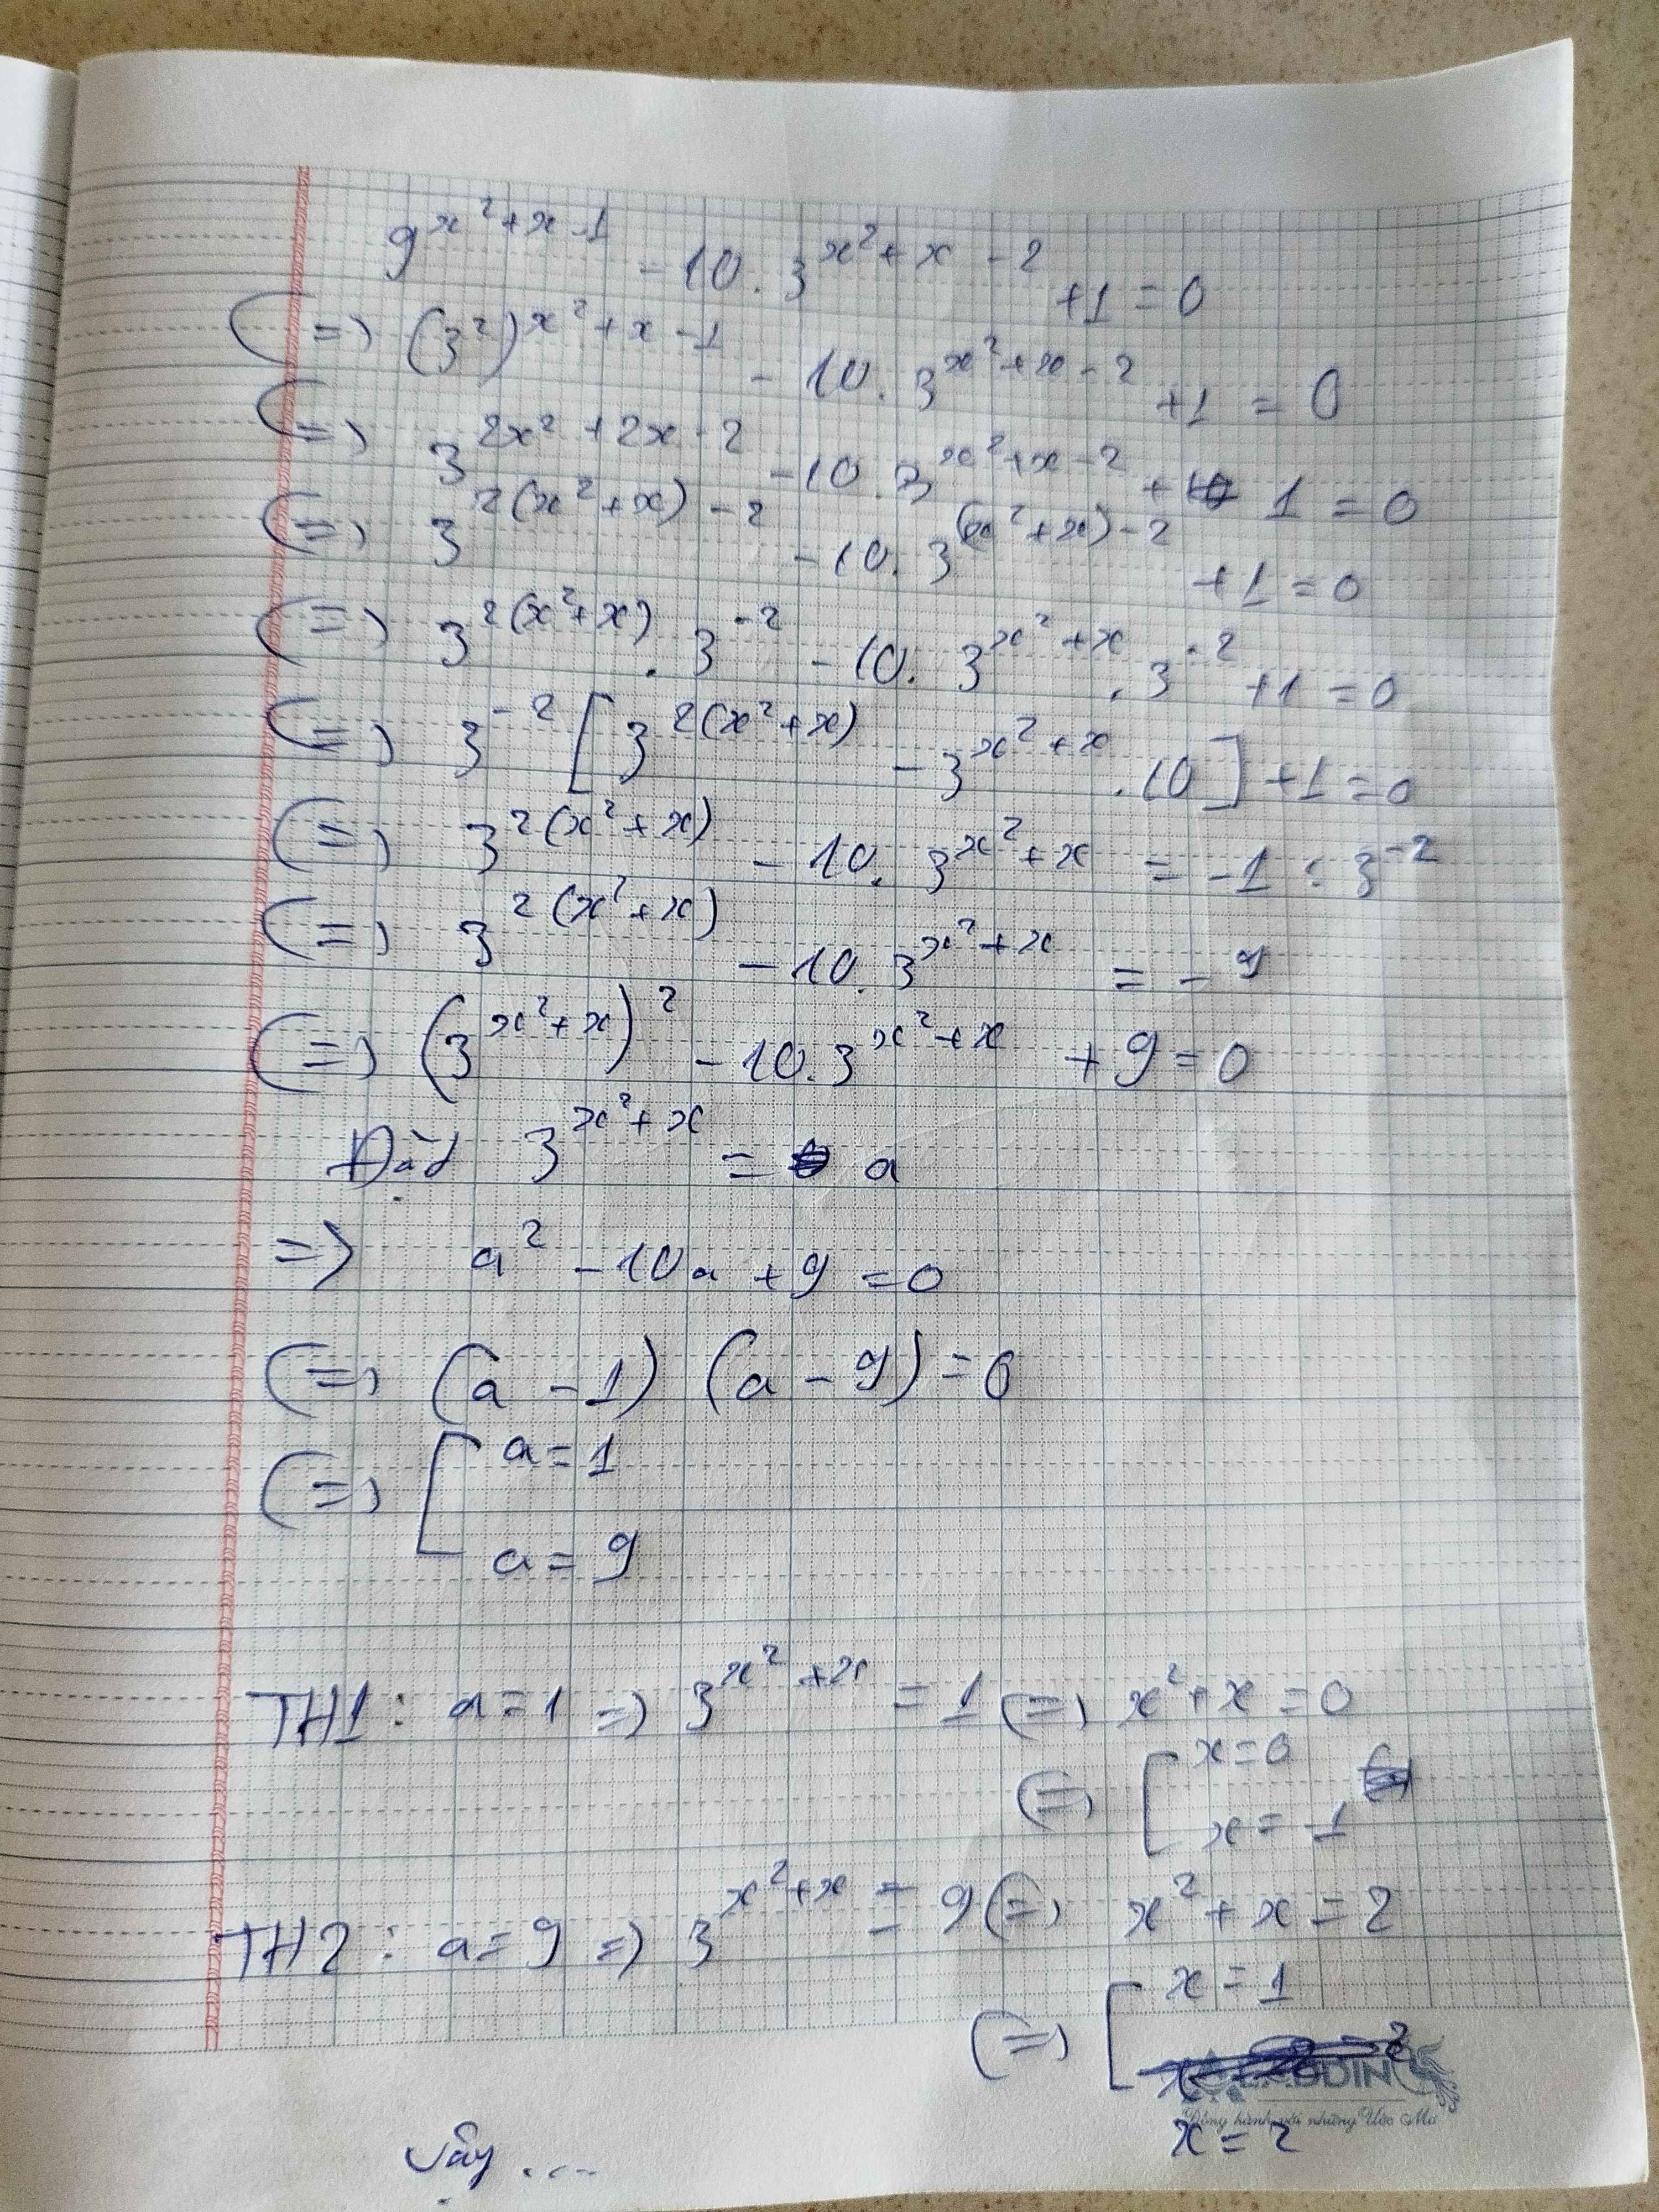 9^{x^2+x-1} - 10 . 3^{x^2+x-2} + 1 = 0
(=) (3^2)^{x^2+x-1} - 10 . 3^{x^2+x-2} + 1 = 0
(=) 3^{2x^2+2x-2} - 10 . 3^{x^2+x-2} + 1 = 0
(=) 3^{2(x^2+x)-2} - 10 . 3^{(x^2+x)-2} + 1 = 0
(=) 3^{2(x^2+x)} . 3^{-2} - 10 . 3^{x^2+x} . 3^{-2} + 1 = 0
(=) 3^{-2} [ 3^{2(x^2+x)} - 3^{x^2+x} . 10 ] + 1 = 0
(=) 3^{2(x^2+x)} - 10 . 3^{x^2+x} = -1 : 3^{-2}
(=) 3^{2(x^2+x)} - 10 . 3^{x^2+x} = - 9
(=) (3^{x^2+x})^2 - 10 . 3^{x^2+x} + 9 = 0
Đặt 3^{x^2+x} = a
=> a^2 - 10a + 9 = 0
(=) (a - 1) (a - 9) = 0
(=) [ a = 1
a = 9
TH1 : a = 1 => 3^{x^2+x} = 1 (=) x^2 + x = 0
(=) [ x = 0
x = -1
TH2 : a = 9 => 3^{x^2+x} = 9 (=) x^2 + x = 2
(=) [ x = 1
Đồng hành với những Ước Mơ
x = 2
Vậy ....